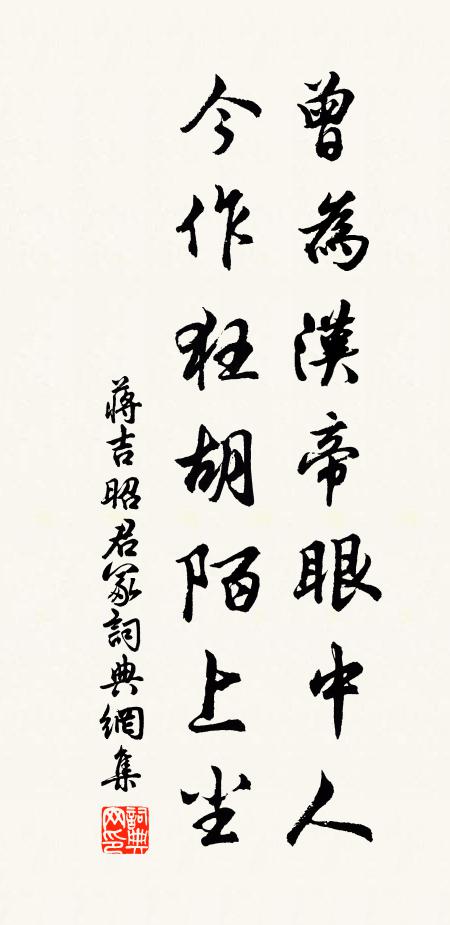 曾為漢帝眼中人
今作狂胡陌上尘
蔣吉昭君冢詞典網集
詞典
网印